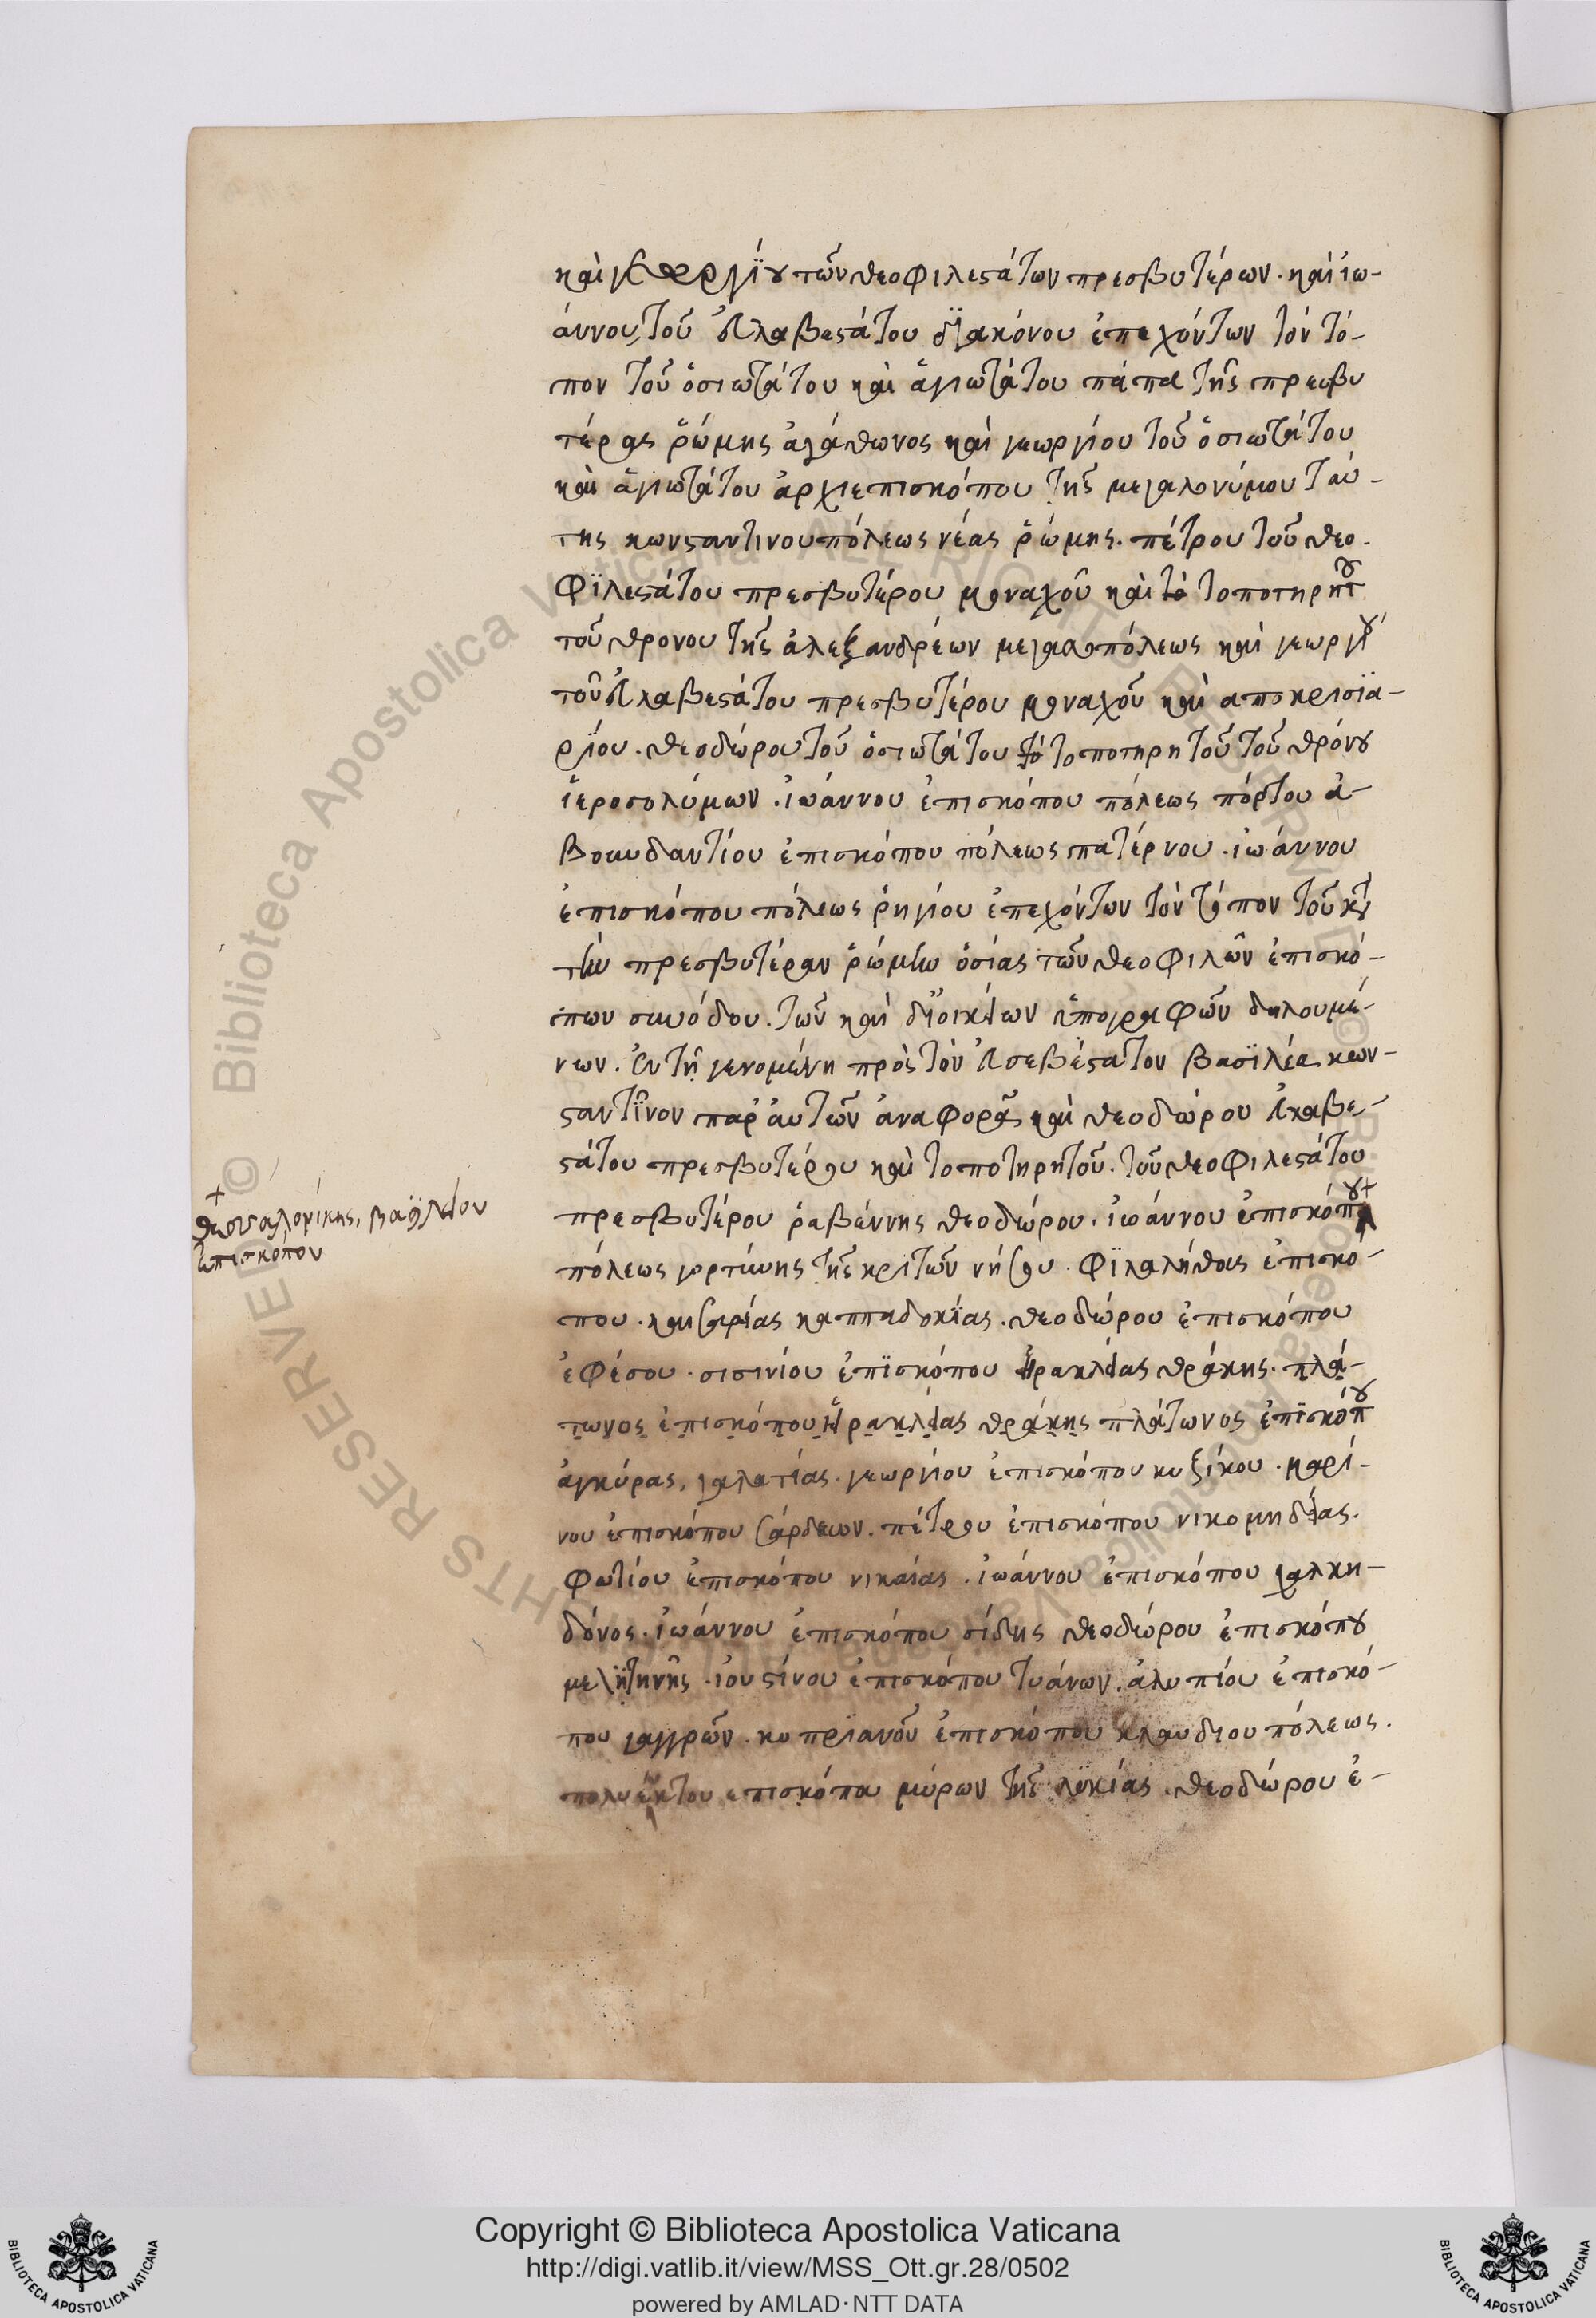 καὶ γεωργίου τῶν θεοφιλεστάτων πρεσβυτέρων. καὶ ἰω-
άννου, τοῦ εὐλαβεστάτου διακόνου ἐπεχόντων τὸν τό-
πον τοῦ ὁσιωτάτου καὶ ἁγιωτάτου πάπα τῆς πρεσβυ
τέρας ῥώμης ἀγάθωνος καὶ γεωργίου τοῦ ὁσιωτάτου
καὶ ἁγιωτάτου ἀρχιεπισκόπου τῆς μεγαλονύμου ταύ-
της κωνσταντινουπόλεως νέας ῥώμης. πέτρου τοῦ θεο-
φϊλεστάτου πρεσβυτέρου μοναχοῦ καὶ τὸ τοποτηρητοῦ
τοῦ θρονου τῆς ἀλεξανδρέων μεγαλοπόλεως καὶ γεωργίου
τοῦ εὐλαβεστάτου πρεσβυτέρου μοναχοῦ καὶ αποκρισϊα-
ρΐου. θεοδώρου τοῦ ὁσιωτάτου τό τοποτηρητοῦ τοῦ θρόνου
ἱεροσολύμων. ἰωάννου ἐπισκόπου πόλεως πόρτου ἀ-
βουνδαντίου ἐπισκόπου πόλεως πατέρνου. ἰωάννου
ἐπισκόπου πόλεως ῥηγίου ἐπεχόντων τὸν τόπον τοῦ κατὰ
τὴν πρεσβυτέραν ῥώμην ὁσίας τῶν θεοφιλῶν ἐπισκό-
πων συνόδου. τῶν καὶ δϊοικείων ὑπογραφῶν δηλουμέ-
νων. ἐν τῇ γενομένῃ πρὸς τὸν εὐσεβέστατον βασϊλέα κων-
σταντῖνον παρ' αὐτῶν ἀναφορᾶς καὶ θεοδώρου εὐλαβε-
στάτου πρεσβυτέρου καὶ τοποτηρητοῦ. τοῦ θεοφιλεστάτου
πρεσβυτέρου ῥαβέννης θεοδώρου. ἰωάννου ἐπισκόπου +
+ θεσσαλονίκης, βασϊλείου
ἐπισκόπου
πόλεως γορτύνης τῆς κριτῶν νήσου. φϊλαλήθους ἐπισκο-
που. καισαρείας καππαδοκΐας. θεοδώρου ἐπισκόπου
ἐφέσου. σισινίου ἐπϊσκόπου ἡρακλείας θράκης. πλά-
τωνος ἐπισκόπου ἡρακλείας θράκης πλάτωνος ἐπϊσκόπου
ἀγκύρας, γαλατίας. γεωργίου ἐπισκόπου κυζίκου. μαρί-
νου ἐπισκόπου σάρδεων. πέτρου ἐπισκόπου νικομηδείας.
φωτίου ἐπισκόπου νικαίας. ἰωάννου ἐπισκόπου χαλκη-
δόνος. ἰωάννου ἐπισκόπου σίδης θεοδώρου ἐπισκόπου
μελϊτηνῆς. ἰουστίνου ἐπισκόπου τυάνων. ἀλυπίου ἐπισκό-
που γαγγρῶν. κυπριανοῦ ἐπισκόπου κλαυδιουπόλεως.
πολυεύκτου επισκόπου μύρων τῆς λυκίας. θεοδώρου ἐ-
Copyright © Biblioteca Apostolica Vaticana
http://digi.vatlib.it/view/MSS_Ott.gr.28/0502
powered by AMLAD·NTT DATA